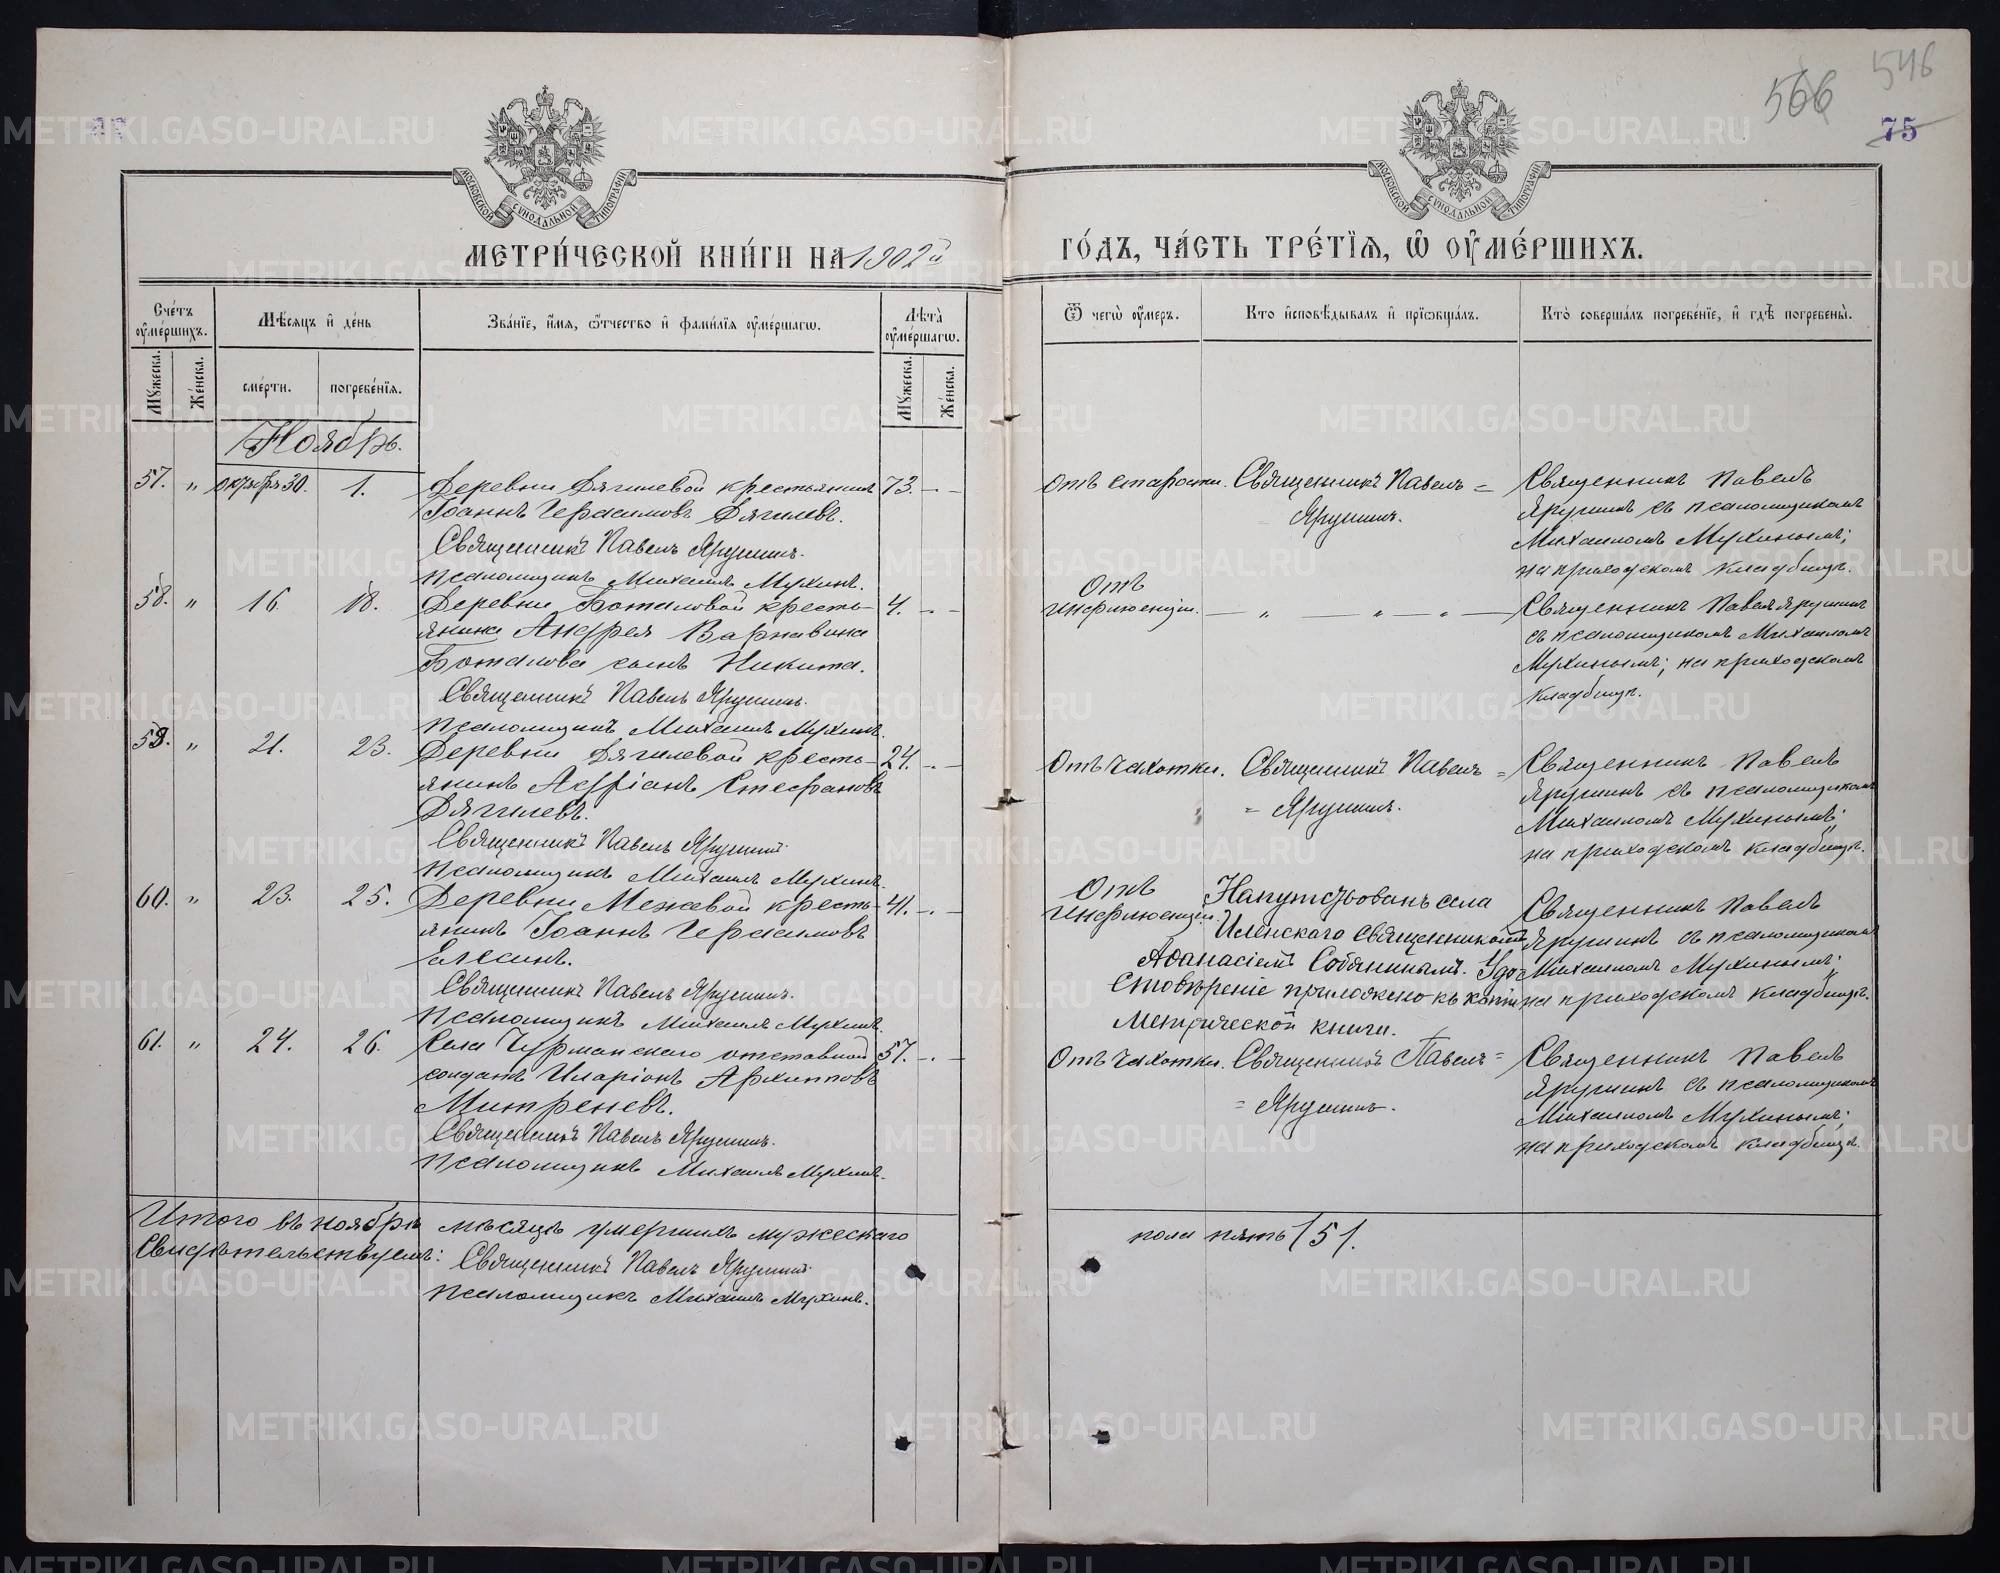 566
546
75
МОСКОВСКОЙ СѴНОДАЛЬНОЙ ТИПОГРАФІИ
МОСКОВСКОЙ СѴНОДАЛЬНОЙ ТИПОГРАФІИ
МЕТРИ́ЧЕСКОЙ КНИ́ГИ НА 1902й ГО́ДЪ, ЧА́СТЬ ТРЕ́ТІѦ, Ѡ ОУМЕ́РШИХЪ.
Сче́тъ оумершихъ.
Мѣсяцъ и де́нь
Зва́нїе, и́мя, ѻтчество и фами́лїя оумершагѡ.
Лѣта̀ оумершагѡ.
Ѿ чегѡ̀ оумеръ.
Кто̀ исповѣдывалъ и прїѡбща́лъ.
Кто̀ соверша́лъ погребе́нїе, и гдѣ̀ погребены̀.
Мꙋжеска.
Же́нска.
сме́рти.
погребе́нїя.
Мꙋжеска.
Же́нска.
Ноябрь.
57. " октября 30. 1. Деревни Дягилевой крестьянинъ 73. - -
Іоаннъ Герасимовъ Дягилевъ.
Священникъ Павелъ Ярушинъ.
Псаломщикъ Михаилъ Мухинъ.
Отъ старости. Священникъ Павелъ =
Ярушинъ.
Священникъ Павелъ
Ярушинъ съ псаломщикомъ
Михаиломъ Мухинымъ;
на приходскомъ кладбищѣ.
58. " 16. 18. Деревни Боталовой кресть- 4. - -
янина Андрея Варнавина
Боталова сынъ Никита.
Священникъ Павелъ Ярушинъ.
Псаломщикъ Михаилъ Мухинъ.
Отъ
инфлюенціи. — " — " — " —
Священникъ Павелъ Ярушинъ
съ псаломщикомъ Михаиломъ
Мухинымъ; на приходскомъ
кладбищѣ.
59. " 21. 23. Деревни Дягилевой кресть- 24. - -
янинъ Авдріанъ Стефановъ
Дягилевъ.
Священникъ Павелъ Ярушинъ
Псаломщикъ Михаилъ Мухинъ.
Отъ чахотки. Священникъ Павелъ =
= Ярушинъ.
Священникъ Павелъ
Ярушинъ съ псаломщикомъ
Михаиломъ Мухинымъ;
на приходскомъ кладбищѣ.
60. " 23. 25. Деревни Межевой кресть- 41. - -
янинъ Іоаннъ Герасимовъ
Елесинъ.
Священникъ Павелъ Ярушинъ.
Псаломщикъ Михаилъ Мухинъ.
Отъ
инфлюенціи.
Напутствованъ села
Иленскаго священникомъ
Аѳанасіемъ Собянинымъ. Удо-
стовѣреніе приложено къ копіи
метрической книги.
Священникъ Павелъ
Ярушинъ съ псаломщикомъ
Михаиломъ Мухинымъ;
на приходскомъ кладбищѣ.
61. " 24. 26. Села Чурманскаго отставной 57. - -
солдатъ Иларіонъ Архиповъ
Митреневъ.
Священникъ Павелъ Ярушинъ.
Псаломщикъ Михаилъ Мухинъ.
Отъ чахотки. Священникъ Павелъ =
= Ярушинъ.
Священникъ Павелъ
Ярушинъ съ псаломщикомъ
Михаиломъ Мухинымъ;
на приходскомъ кладбищѣ.
Итого въ ноябрѣ мѣсяцѣ умершихъ мужескаго пола пять /5/.
Свидѣтельствуемъ: Священникъ Павелъ Ярушинъ
Псаломщикъ Михаилъ Мухинъ.
METRIKI.GASO-URAL.RU